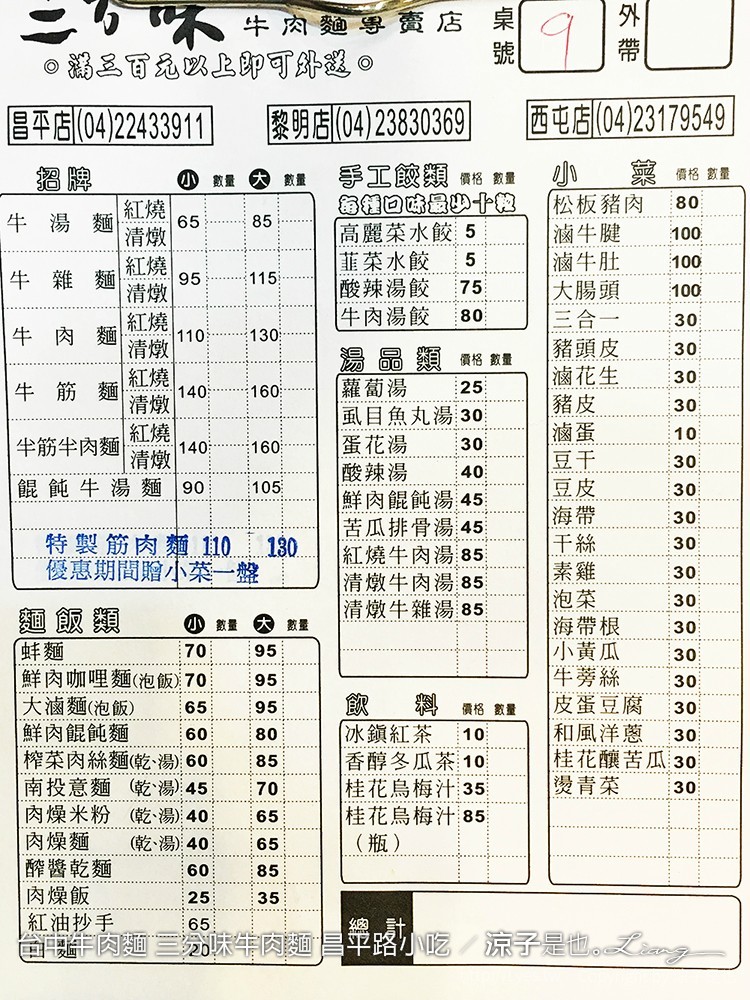 三分味 牛肉麵專賣店 桌號 9 外帶
◎滿三百元以上即可外送◎
昌平店(04)22433911 黎明店(04)23830369 西屯店(04)23179549
招牌 小 數量 大 數量
牛湯麵 紅燒 清燉 65 85
牛雜麵 紅燒 清燉 95 115
牛肉麵 紅燒 清燉 110 130
牛筋麵 紅燒 清燉 140 160
半筋半肉麵 紅燒 清燉 140 160
餛飩牛湯麵 90 105
特製筋肉麵 110 130
優惠期間贈小菜一盤
麵飯類 小 數量 大 數量
蚌麵 70 95
鮮肉咖哩麵(泡飯) 70 95
大滷麵(泡飯) 65 95
鮮肉餛飩麵 60 80
榨菜肉絲麵(乾、湯) 60 85
南投意麵 (乾、湯) 45 70
肉燥米粉 (乾、湯) 40 65
肉燥麵 (乾、湯) 40 65
醡醬乾麵 60 85
肉燥飯 25 35
紅油抄手 65
白麵 20
手工餃類 價格 數量
每種口味最少十粒
高麗菜水餃 5
韮菜水餃 5
酸辣湯餃 75
牛肉湯餃 80
湯品類 價格 數量
蘿蔔湯 25
虱目魚丸湯 30
蛋花湯 30
酸辣湯 40
鮮肉餛飩湯 45
苦瓜排骨湯 45
紅燒牛肉湯 85
清燉牛肉湯 85
清燉牛雜湯 85
飲料 價格 數量
冰鎮紅茶 10
香醇冬瓜茶 10
桂花烏梅汁 35
桂花烏梅汁 85
(瓶)
小菜 價格 數量
松板豬肉 80
滷牛腱 100
滷牛肚 100
大腸頭 100
三合一 30
豬頭皮 30
滷花生 30
豬皮 30
滷蛋 10
豆干 30
豆皮 30
海帶 30
干絲 30
素雞 30
泡菜 30
海帶根 30
小黃瓜 30
牛蒡絲 30
皮蛋豆腐 30
和風洋蔥 30
桂花釀苦瓜 30
燙青菜 30
總計
台中牛肉麵 三分味牛肉麵 昌平路小吃 / 涼子是也。Ling